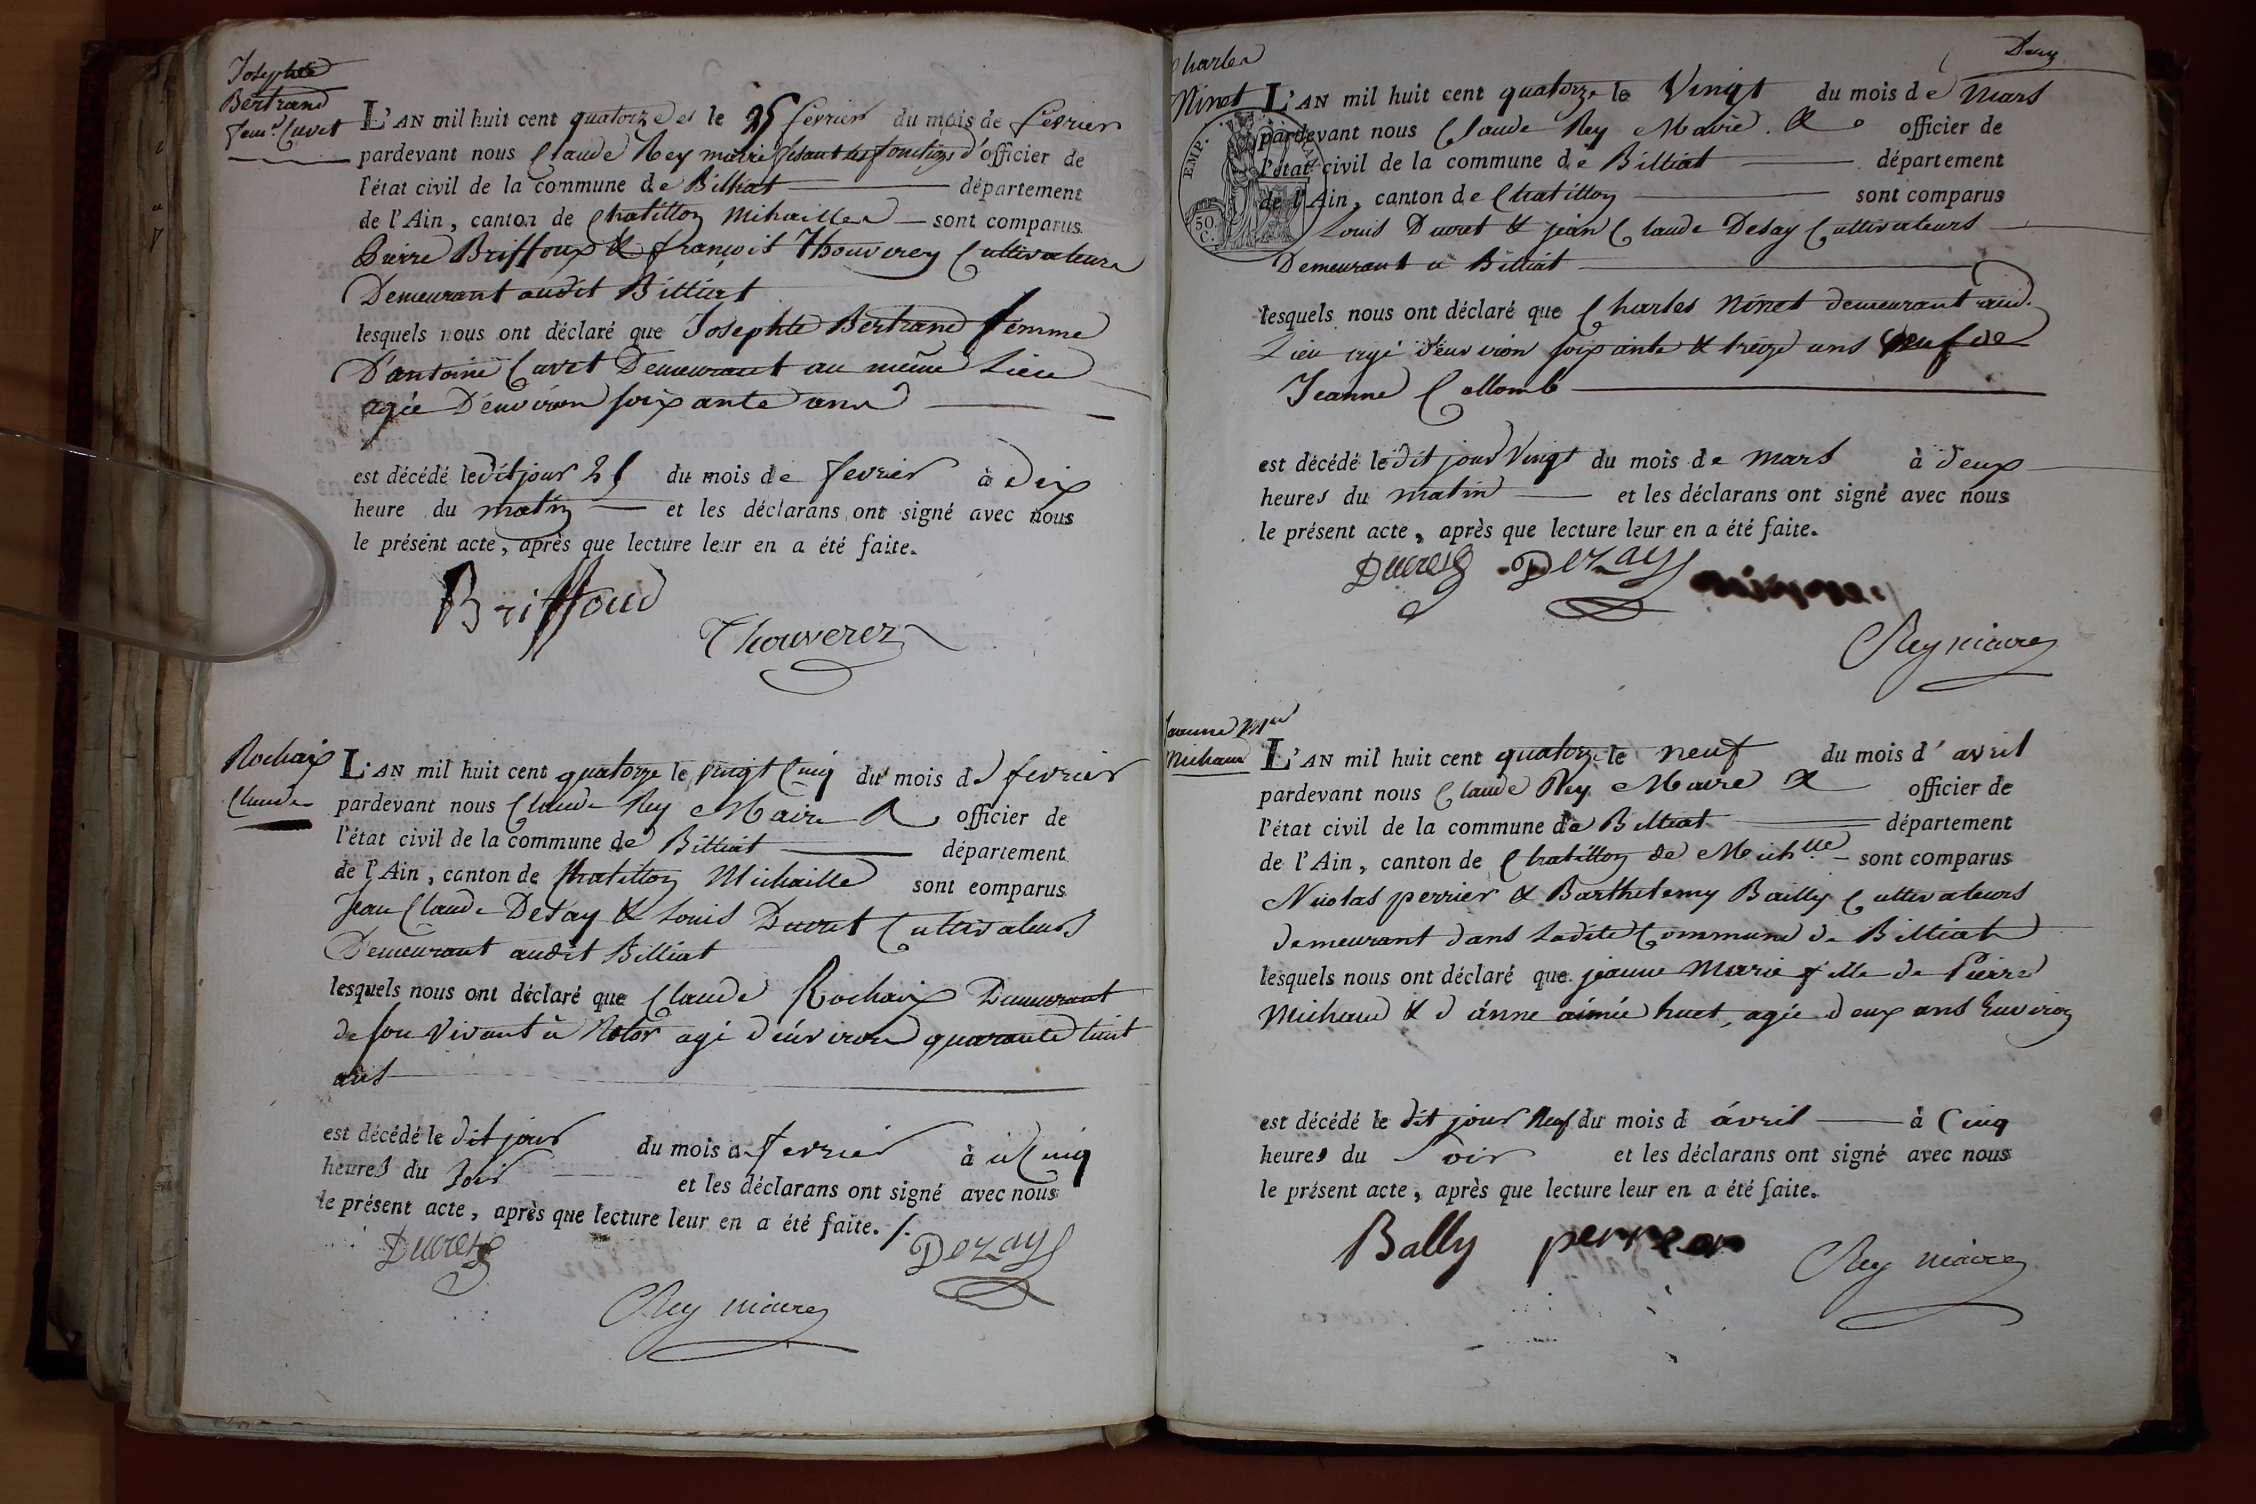 Josephte
Bertrand
fem.e Cuvet
L'AN mil huit cent quatorze et le 25 fevrier du mois de fevrier
pardevant nous Claude Rey maire fesant les fonctions d'officier de
l'état civil de la commune de Billiat département
de l'Ain, canton de Chatillon Mihailles sont comparus
Pierre Briffoux & françois Thouverey Cultivateurs
Demeurant audit Billiat
lesquels nous ont déclaré que Josephte Bertrand femme
D'antoine Cuvet Demeurant au même Lieu
agée D'environ soixante ans
est décédé le dit jour 25 du mois de fevrier à dix
heure du matin et les déclarans ont signé avec nous
le présent acte, après que lecture leur en a été faite.
Briffoud
Thouverez
Rochaix
Claude
L'AN mil huit cent quatorze le vingt Cinq du mois de fevrier
pardevant nous Claude Rey Maire officier de
l'état civil de la commune de Billiat département
de l'Ain, canton de Chatillon Michaille sont comparus
Jean Claude Desay & Louis Ducret Cultivateurs
Demeurant audit Billiat
lesquels nous ont déclaré que Claude Rochaix Demeurant
de son Vivant à agé d'environ quarante huit
ans
est décédé le dit jour du mois de fevrier à Cinq
heures du soir et les déclarans ont signé avec nous
le présent acte, après que lecture leur en a été faite.
Ducret Dezay
CRey maire
Deux
Charles
Ninet
EMP.
50
C.
L'AN mil huit cent quatorze le Vingt du mois de Mars
pardevant nous Claude Rey Maire officier de
l'état civil de la commune de Billiat département
de l'Ain, canton de Chatillon sont comparus
Louis Ducret & jean Claude Desay Cultivateurs
Demeurant a Billiat
lesquels nous ont déclaré que Charles Ninet demeurant aud.
Lieu agé d'environ soixante & treize ans veuf de
Jeanne Collomb
est décédé le dit jour Vingt du mois de Mars à deux
heures du matin et les déclarans ont signé avec nous
le présent acte, après que lecture leur en a été faite.
Ducret Dezay
CRey maire
Jeanne M.ie
Michaud
L'AN mil huit cent quatorze le neuf du mois d' avril
pardevant nous Claude Rey Maire officier de
l'état civil de la commune de Billiat département
de l'Ain, canton de Chatillon de Mich.lle sont comparus
Nicolas perrier & Barthelemy Bailly Cultivateurs
demeurant dans Ladite Commune de Billiat
lesquels nous ont déclaré que jeanne Marie fille de Pierre
Michaud & d'anne aimée huet, agée deux ans Environ
est décédé le dit jour Neuf du mois d avril à Cinq
heures du Soir et les déclarans ont signé avec nous
le présent acte, après que lecture leur en a été faite.
Bally perrier
CRey maire